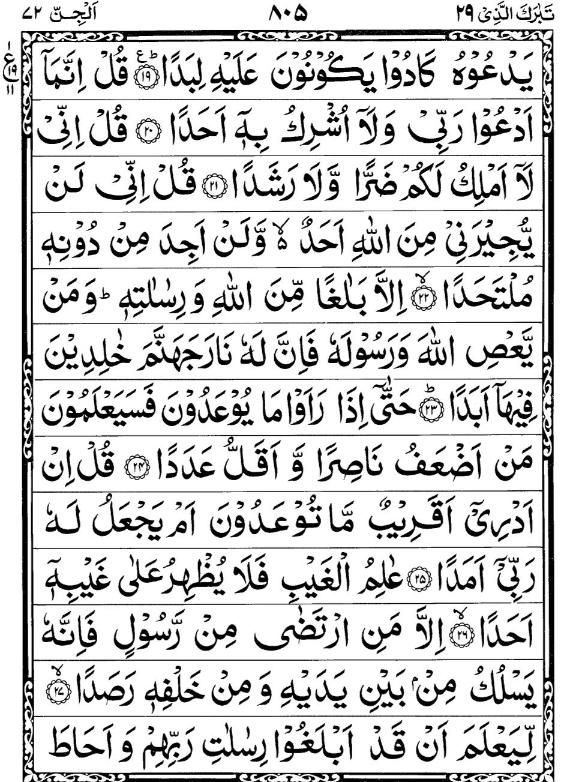 تَبٰرَكَ الَّذِیْ ٢٩ ٨٠٥ اَلْجِنّ ٧٢
یَدْعُوْهُ كَادُوْا یَكُوْنُوْنَ عَلَیْهِ لِبَدًا ۝١٩ؕ قُلْ اِنَّمَاۤ
اَدْعُوْا رَبِّیْ وَلَاۤ اُشْرِكُ بِهٖۤ اَحَدًا ۝٢٠ قُلْ اِنِّیْ
لَاۤ اَمْلِكُ لَكُمْ ضَرًّا وَّلَا رَشَدًا ۝٢١ قُلْ اِنِّیْ لَنْ
یُّجِیْرَنِیْ مِنَ اللّٰهِ اَحَدٌ ۙ۬ وَّلَنْ اَجِدَ مِنْ دُوْنِهٖ
مُلْتَحَدًا ۝٢٢ۙ اِلَّا بَلٰغًا مِّنَ اللّٰهِ وَرِسٰلٰتِهٖ ؕ وَمَنْ
یَّعْصِ اللّٰهَ وَرَسُوْلَهٗ فَاِنَّ لَهٗ نَارَ جَهَنَّمَ خٰلِدِیْنَ
فِیْهَاۤ اَبَدًا ۝٢٣ؕ حَتّٰۤی اِذَا رَاَوْا مَا یُوْعَدُوْنَ فَسَیَعْلَمُوْنَ
مَنْ اَضْعَفُ نَاصِرًا وَّ اَقَلُّ عَدَدًا ۝٢٤ قُلْ اِنْ
اَدْرِیْۤ اَقَرِیْبٌ مَّا تُوْعَدُوْنَ اَمْ یَجْعَلُ لَهٗ
رَبِّیْۤ اَمَدًا ۝٢٥ عٰلِمُ الْغَیْبِ فَلَا یُظْهِرُ عَلٰی غَیْبِهٖۤ
اَحَدًا ۝٢٦ۙ اِلَّا مَنِ ارْتَضٰی مِنْ رَّسُوْلٍ فَاِنَّهٗ
یَسْلُكُ مِنْۢ بَیْنِ یَدَیْهِ وَمِنْ خَلْفِهٖ رَصَدًا ۝٢٧ۙ
لِّیَعْلَمَ اَنْ قَدْ اَبْلَغُوْا رِسٰلٰتِ رَبِّهِمْ وَ اَحَاطَ